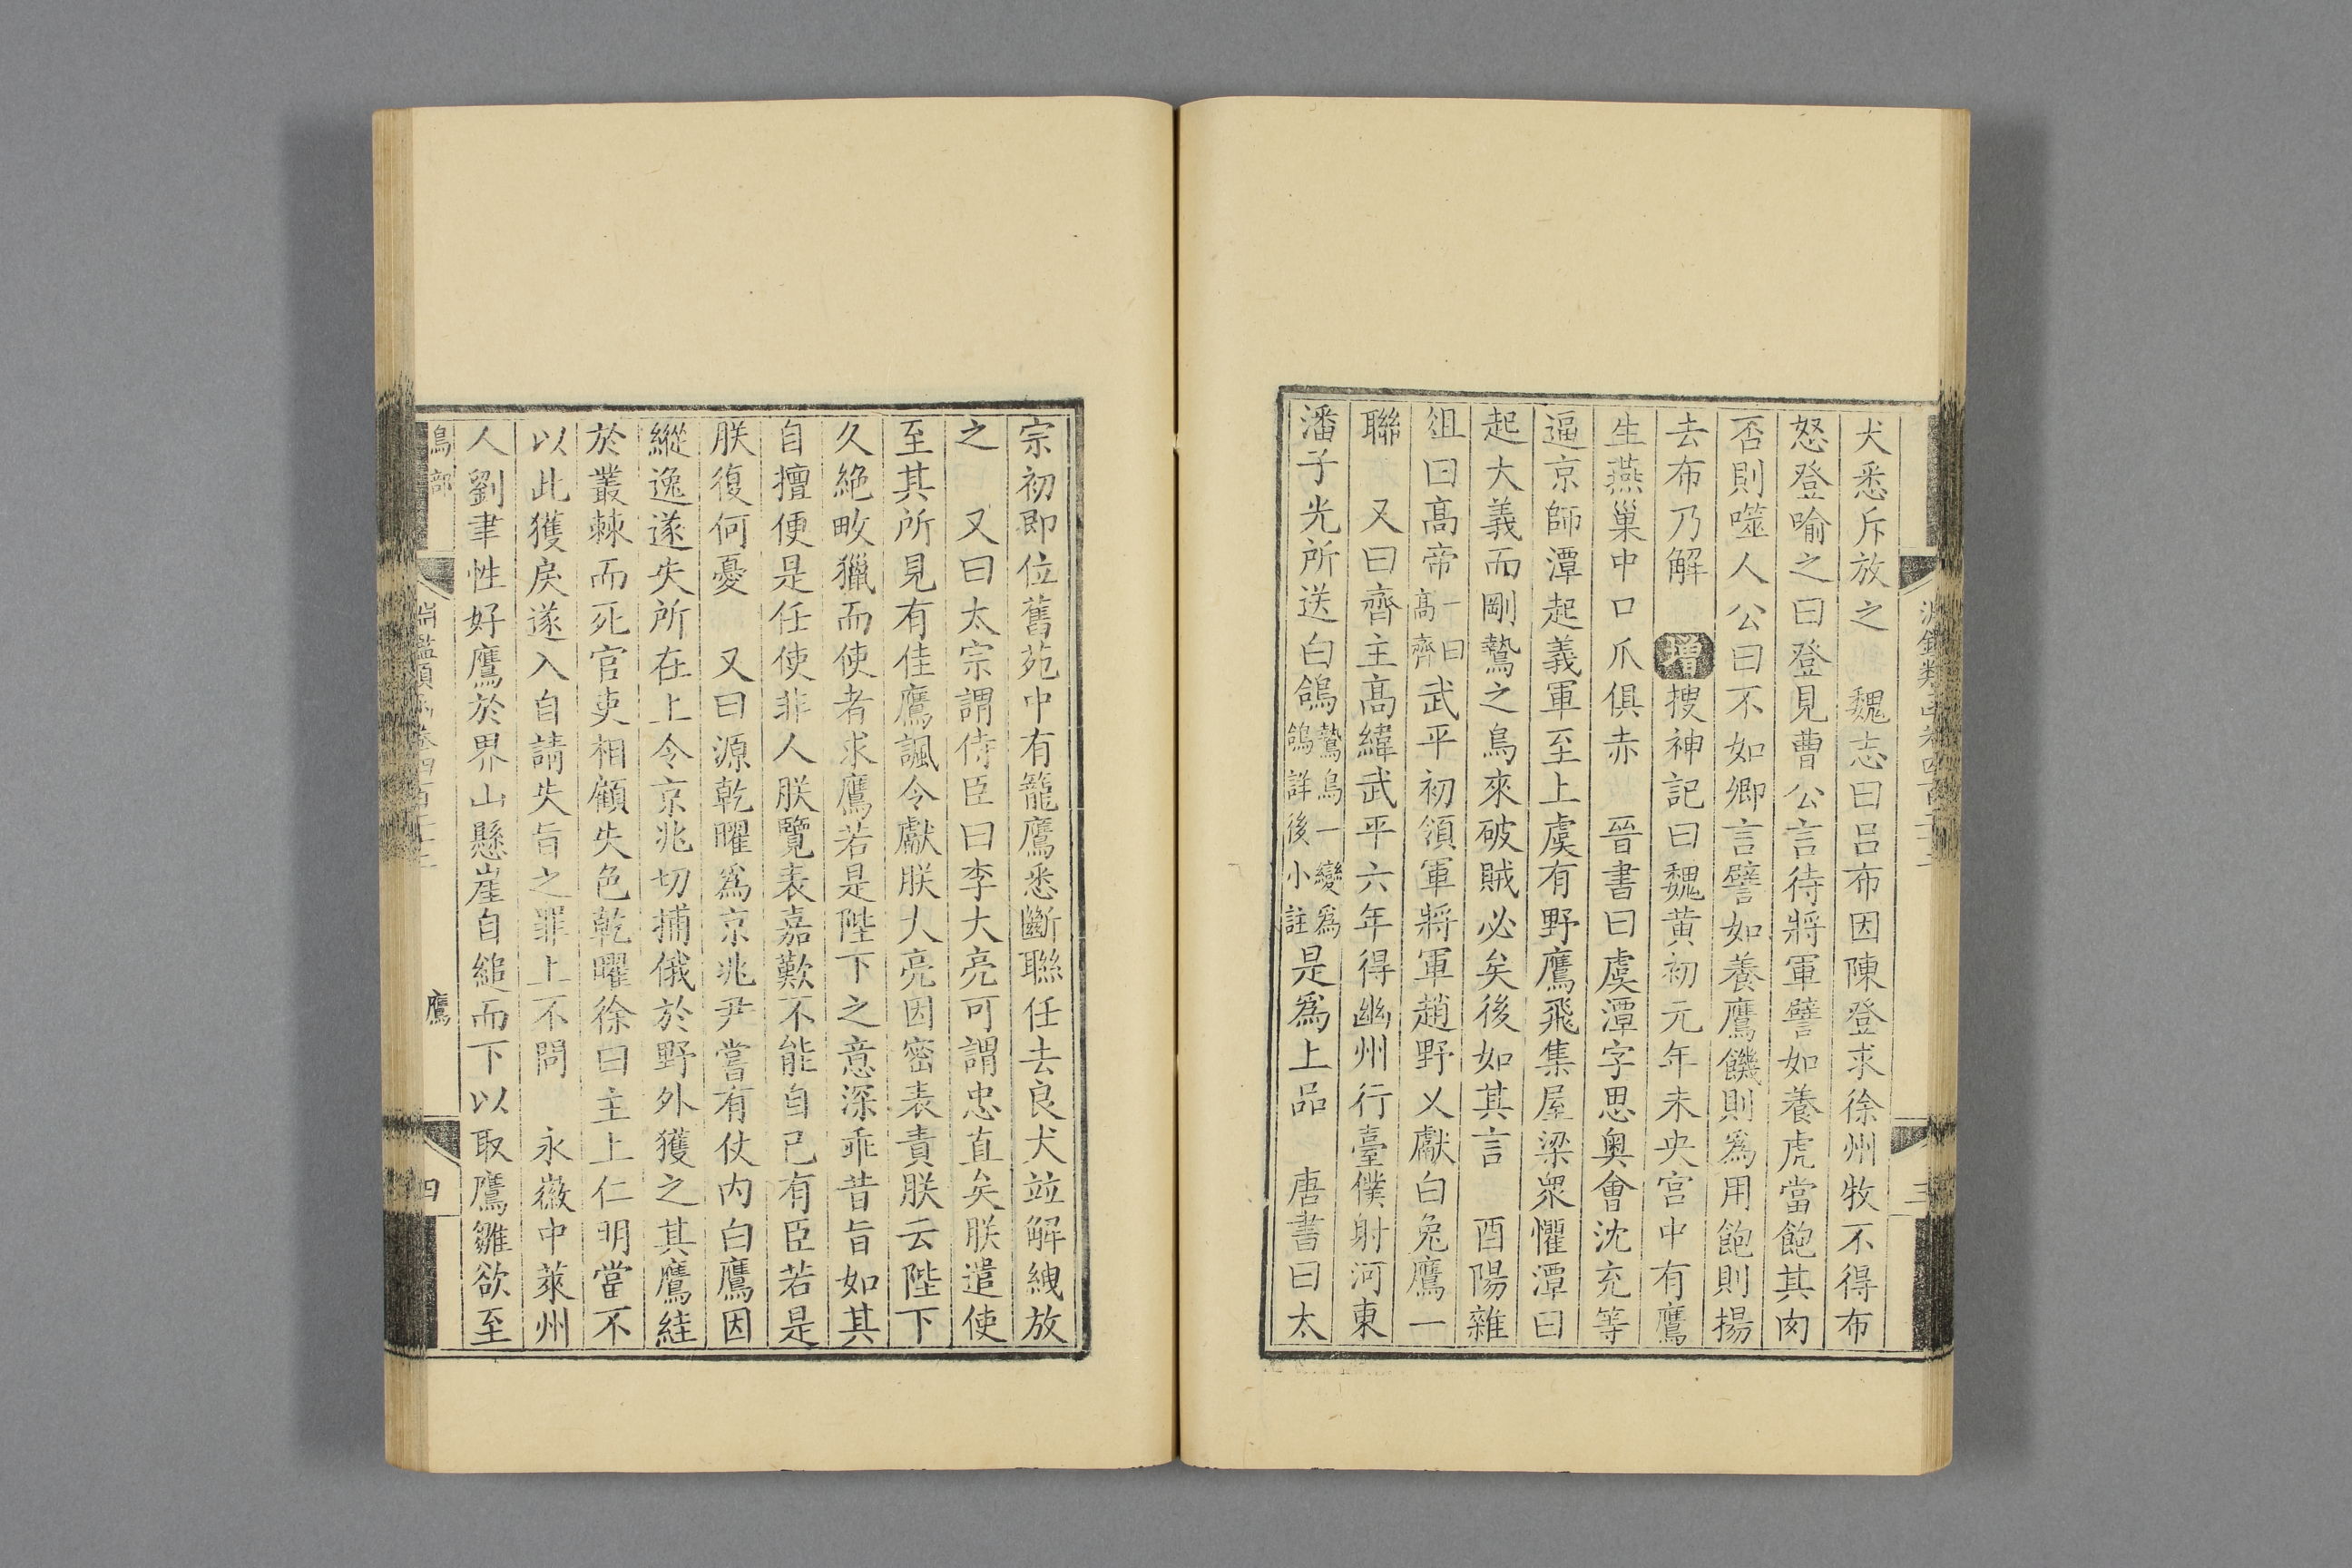 犬悉斥放之　魏志曰呂布因陳登求徐州牧不得布
怒登喻之曰登見曹公言待將軍譬如養虎當飽其肉
否則噬人公曰不如卿言譬如養鷹饑則爲用飽則揚
去布乃解　增搜神記曰魏黃初元年未央宮中有鷹
生燕巢中口爪俱赤　晉書曰虞潭字思奧會沈充等
逼京師潭起義軍至上虞有野鷹飛集屋梁衆懼潭曰
起大義而剛鷙之鳥來破賊必矣後如其言　酉陽雜
俎曰高帝一曰高齊武平初領軍將軍趙野乂獻白兔鷹一
聯　又曰齊主高緯武平六年得幽州行臺僕射河東
潘子光所送白鴿鷙鳥一變爲鴿詳後小註是爲上品　唐書曰太
宗初即位舊苑中有籠鷹悉斷聯任去良犬竝解紲放
之　又曰太宗謂侍臣曰李大亮可謂忠直矣朕遣使
至其所見有佳鷹諷令獻朕大亮因密表責朕云陛下
久絶畋獵而使者求鷹若是陛下之意深乖昔旨如其
自擅便是任使非人朕覽表嘉歎不能自已有臣若是
朕復何憂　又曰源乾曜爲京兆尹嘗有仗内白鷹因
縱逸遂失所在上令京兆切捕俄於野外獲之其鷹絓
於叢棘而死官吏相顧失色乾曜徐曰主上仁明當不
以此獲戾遂入自請失旨之罪上不問　永徽中萊州
人劉聿性好鷹於界山懸崖自縋而下以取鷹雛欲至
鳥部
鷹
四